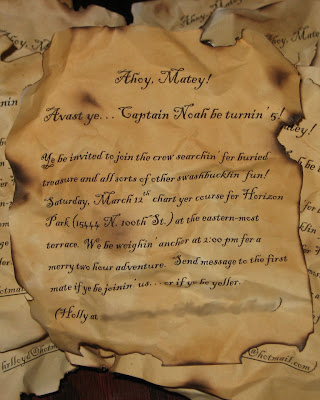 Ahoy, Matey!
Avast ye... Captain Noah be turnin' 5!
Ye be invited to join the crew searchin' fer buried
treasure and all sorts of other swashbucklin' fun!
Saturday, March 12th chart yer course for Horizon
Park (15444 N. 100th St.) at the eastern-most
terrace. We be weighin' ancher at 2:00 pm fer a
merry two hour adventure. Send message to the first
mate if ye be joinin' us... or if ye be yeller.
(Holly a )
@hotmail.com)